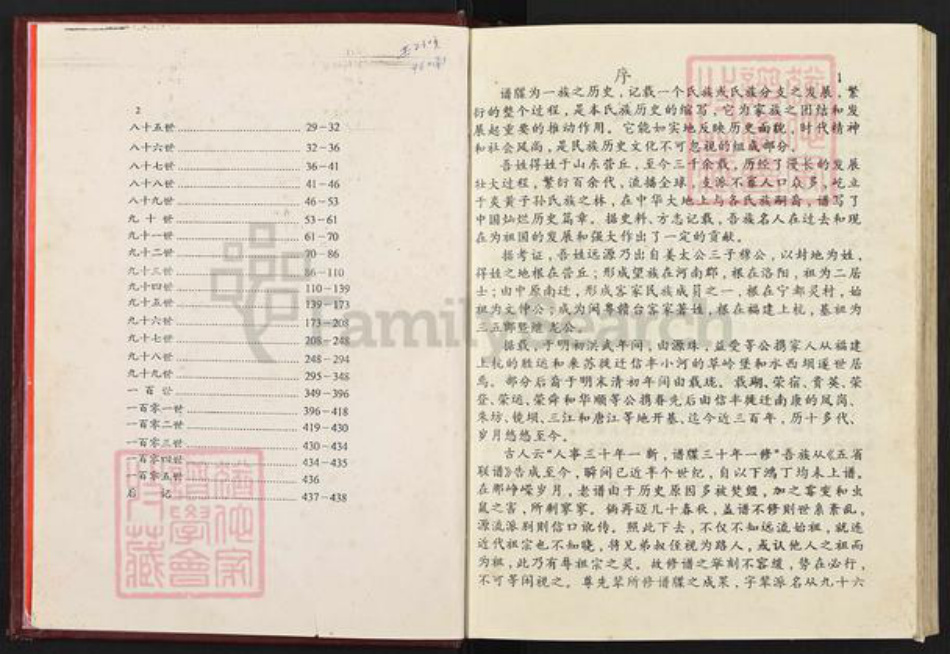 2
八十五世 29-32
八十六世 32-36
八十七世 36-41
八十八世 41-46
八十九世 46-53
九十世 53-61
九十一世 61-70
九十二世 70-86
九十三世 86-110
九十四世 110-139
九十五世 139-173
九十六世 173-208
九十七世 208-248
九十八世 248-294
九十九世 295-348
一百世 349-396
一百零一世 396-418
一百零二世 419-430
一百零三世 430-434
一百零四世 434-435
一百零五世 436
后记 437-438
序
1
谱牒为一族之历史，记载一个氏族或氏族分支之发展，繁
衍的整个过程，是本氏族历史的缩写，它为家族之团结和发
展起重要的推动作用。它能如实地反映历史面貌，时代精神
和社会风尚，是民族历史文化不可忽视的组成部分。
吾姓得姓于山东营丘，至今三千余载，历经了漫长的发展
壮大过程，繁衍百余代，流播全球，支派不紊人口众多，屹立
于炎黄子孙氏族之林，在中华大地上与各氏族嗣裔，谱写了
中国灿烂历史篇章。据史料、方志记载，吾族名人在过去和现
在为祖国的发展和强大作出了一定的贡献。
据考证，吾姓远源乃出自姜太公三子穆公，以封地为姓，
得姓之地根在营丘；形成望族在河南郡，根在洛阳，祖为二居
士；由中原南迁，形成客家民族成员之一，根在宁都灵村，始
祖为文仲公；成为闽粤赣台客家著姓，根在福建上杭，基祖为
三五郎暨继龙公。
据载，于明初洪武年间，由源珠、益受等公携家人从福建
上杭的胜运和来苏徙迁信丰小河的草岭堡和水西坝递世居
焉。部分后裔于明末清初年间由载珑、载瑚、荣宿、贵英、荣
登、荣运、荣舜和华顺等公携眷先后由信丰徙迁南康的凤岗、
朱坊、镜坝、三江和唐江等地开基、迄今近三百年，历十多代、
岁月悠悠至今。
古人云"人事三十年一新，谱牒三十年一修"吾族从《五省
联谱》告成至今，瞬间已近半个世纪，自以下鸿丁均未上谱。
在那峥嵘岁月，老谱由于历史原因多被焚毁，加之霉变和虫
鼠之害，所剩寥寥。倘再迈几十春秋，盖谱不修则世系紊乱，
源流派别则信口讹传。照此下去，不仅不知远流始祖，就连
近代祖宗也不知晓，将兄弟叔侄视为路人，或认他人之祖而
为祖，此乃有辱祖宗之灵。故修谱之举刻不容缓，势在必行，
不可等闲视之。尊先辈所修谱牒之成果，字辈派名从九十六
FamilySearch